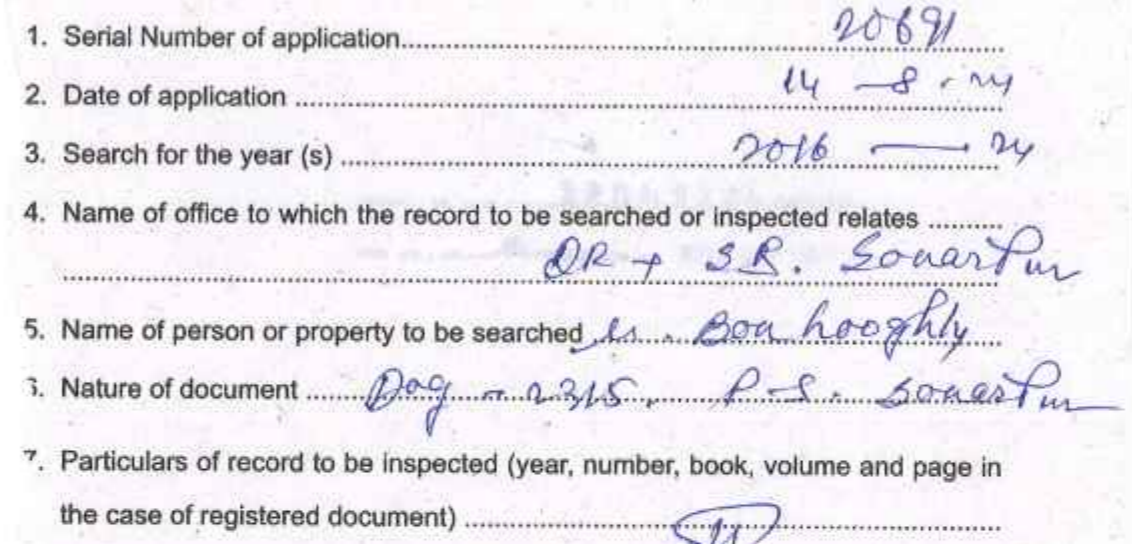 1. Serial Number of application.......... 20691
2. Date of application .......... 14 - 8 . 24
3. Search for the year (s) .......... 2016 — 24
4. Name of office to which the record to be searched or inspected relates ..........
DR + SR. Sonarpur
5. Name of person or property to be searched .......... Bon hooghly
6. Nature of document .......... Dag - 2315. P.S. Sonarpur
7. Particulars of record to be inspected (year, number, book, volume and page in
the case of registered document) ..........